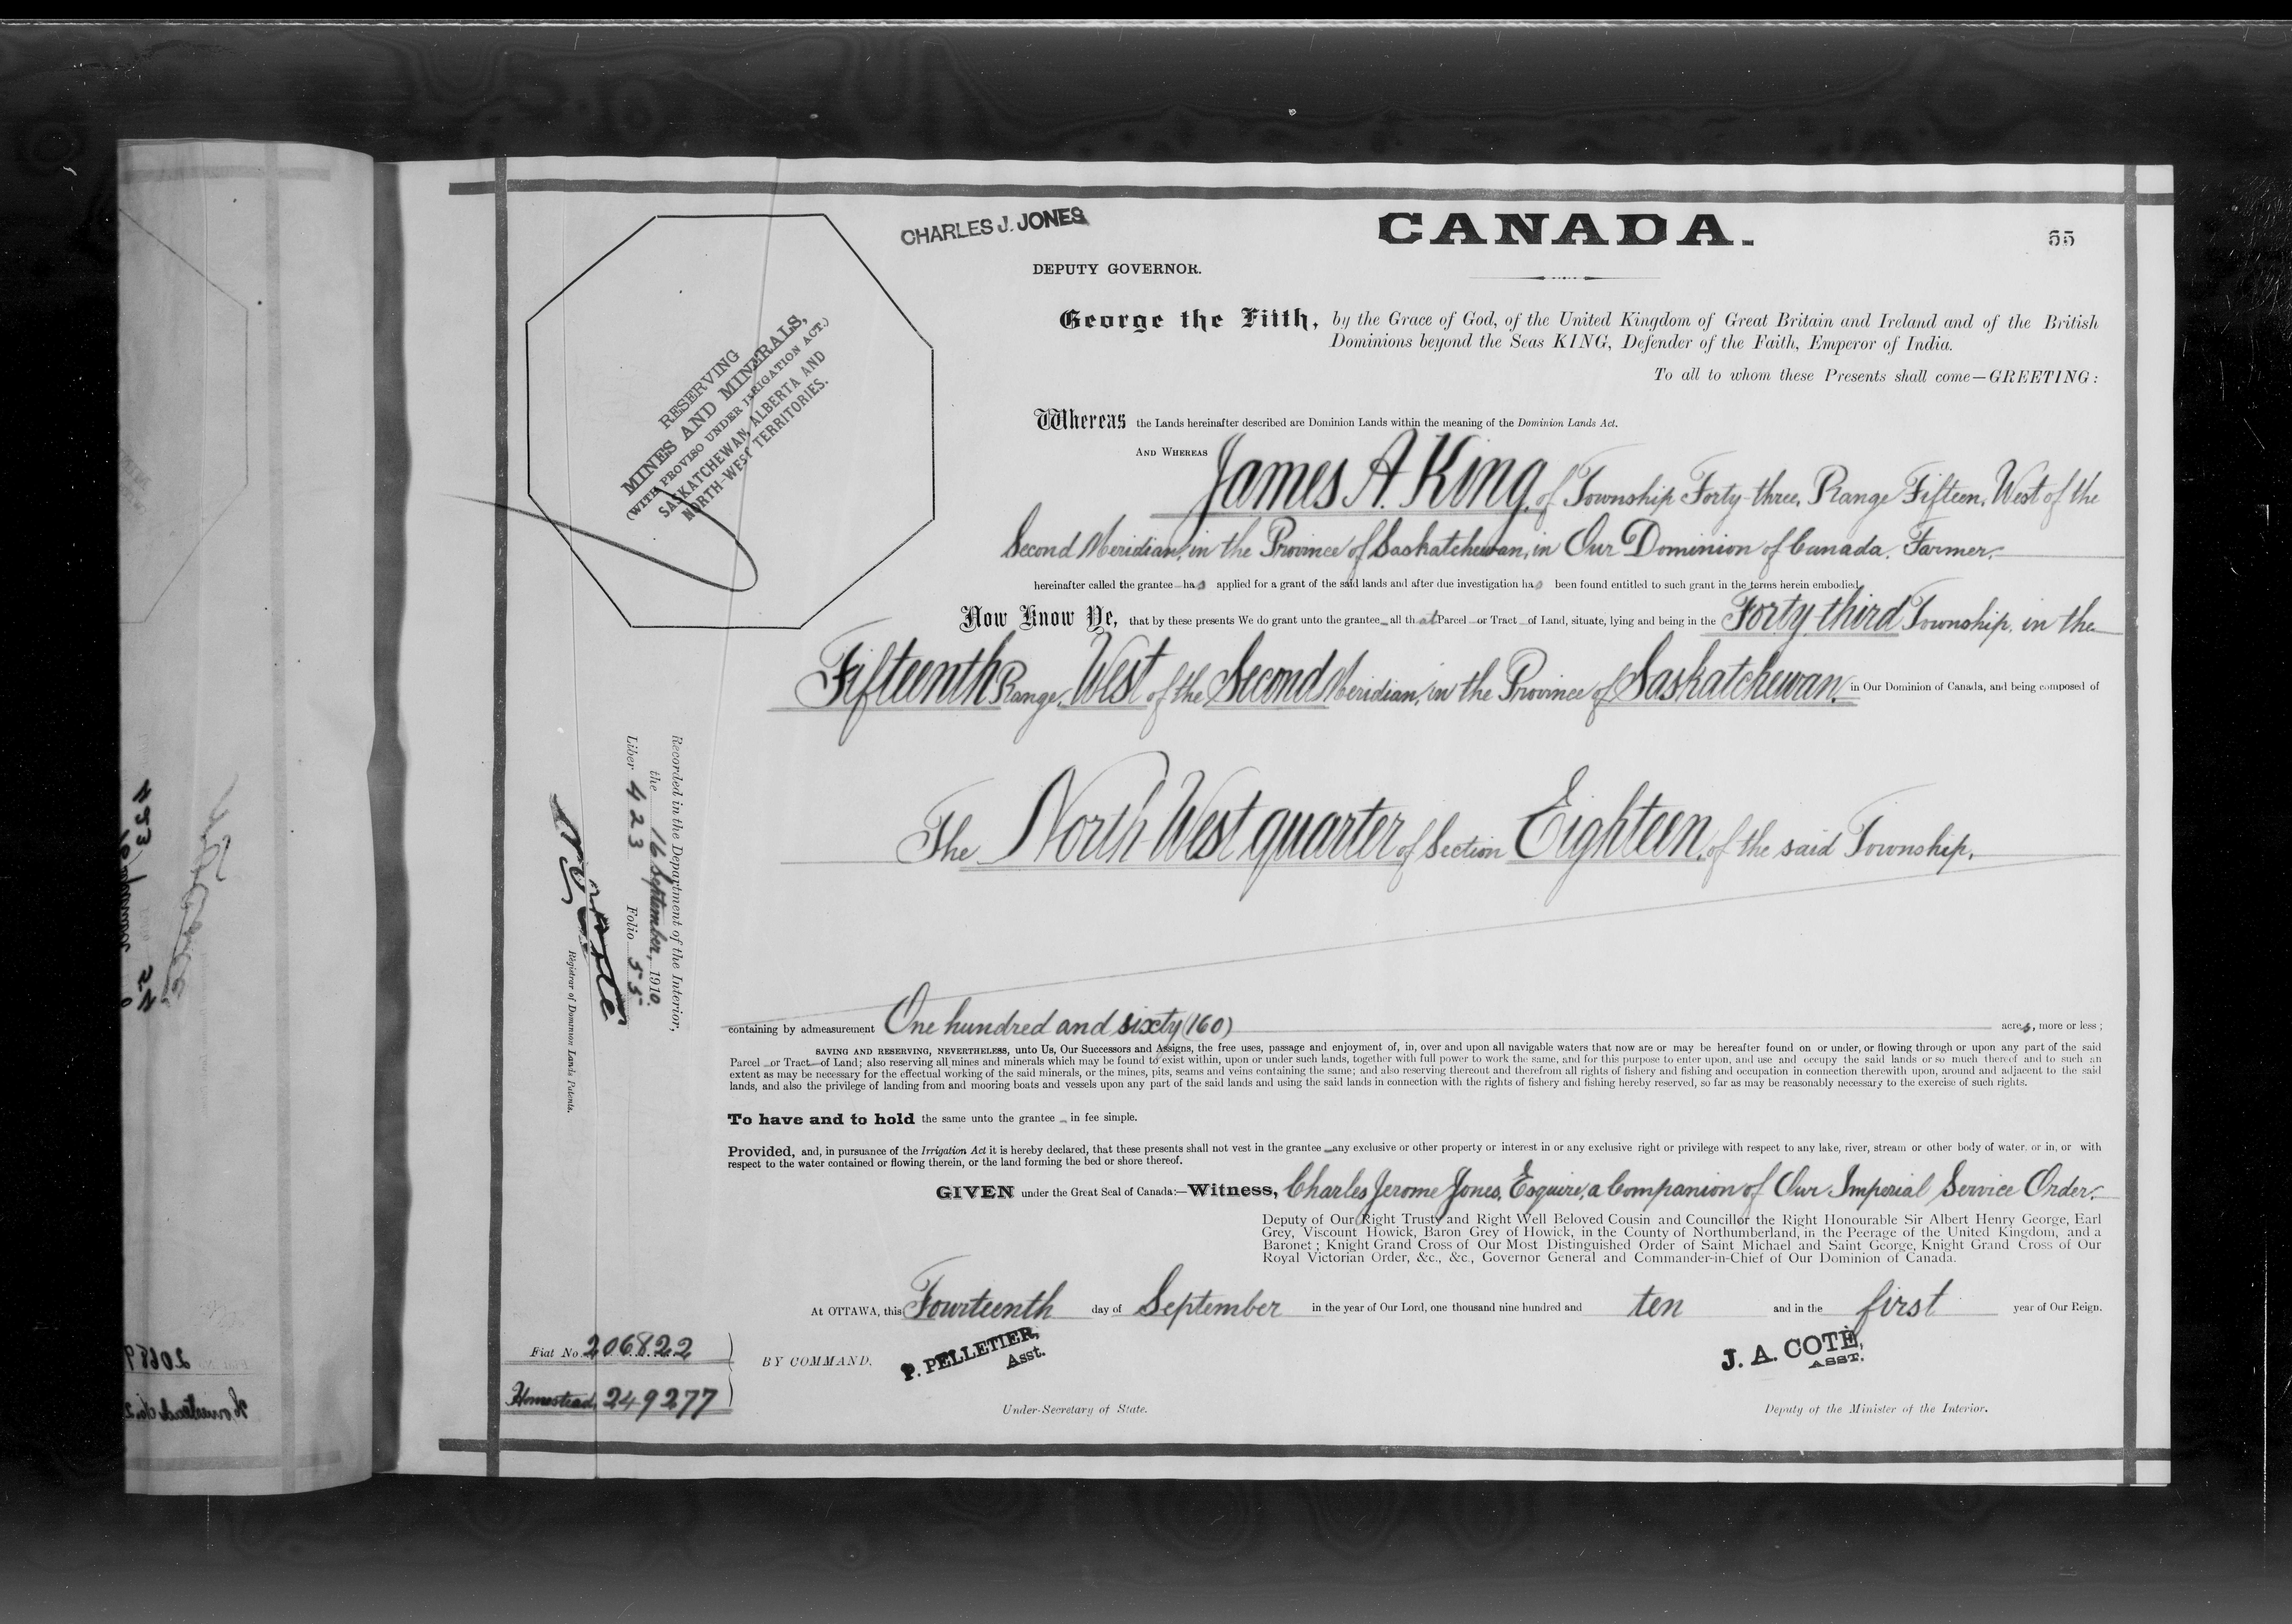 CHARLES J. JONES
CANADA.
55
DEPUTY GOVERNOR.
George the Fifth, by the Grace of God, of the United Kingdom of Great Britain and Ireland and of the British
Dominions beyond the Seas KING, Defender of the Faith, Emperor of India.
To all to whom these Presents shall come—GREETING:
RESERVING
MINES AND MINERALS,
(WITH PROVISO UNDER IRRIGATION ACT.)
SASKATCHEWAN, ALBERTA AND
NORTH-WEST TERRITORIES.
Whereas the Lands hereinafter described are Dominion Lands within the meaning of the Dominion Lands Act.
AND WHEREAS James A. King, of Township Forty-three, Range Fifteen, West of the
Second Meridian, in the Province of Saskatchewan, in Our Dominion of Canada, Farmer,
hereinafter called the grantee has applied for a grant of the said lands and after due investigation has been found entitled to such grant in the terms herein embodied.
Now Know Ye, that by these presents We do grant unto the grantee all that Parcel or Tract of Land, situate, lying and being in the Forty third Township, in the
Fifteenth Range, West of the Second Meridian, in the Province of Saskatchewan, in Our Dominion of Canada, and being composed of
The North West quarter of Section Eighteen, of the said Township,
Recorded in the Department of the Interior,
the 16 September, 1910.
Liber 423 Folio 55
Registrar of Dominion Lands Patents.
containing by admeasurement One hundred and sixty (160) acres, more or less;
SAVING AND RESERVING, NEVERTHELESS, unto Us, Our Successors and Assigns, the free uses, passage and enjoyment of, in, over and upon all navigable waters that now are or may be hereafter found on or under, or flowing through or upon any part of the said
Parcel or Tract of Land; also reserving all mines and minerals which may be found to exist within, upon or under such lands, together with full power to work the same, and for this purpose to enter upon, and use and occupy the said lands or so much thereof and to such an
extent as may be necessary for the effectual working of the said minerals, or the mines, pits, seams and veins containing the same; and also reserving thereout and therefrom all rights of fishery and fishing and occupation in connection therewith upon, around and adjacent to the said
lands, and also the privilege of landing from and mooring boats and vessels upon any part of the said lands and using the said lands in connection with the rights of fishery and fishing hereby reserved, so far as may be reasonably necessary to the exercise of such rights.
To have and to hold the same unto the grantee in fee simple.
Provided, and, in pursuance of the Irrigation Act it is hereby declared, that these presents shall not vest in the grantee any exclusive or other property or interest in or any exclusive right or privilege with respect to any lake, river, stream or other body of water, or in, or with
respect to the water contained or flowing therein, or the land forming the bed or shore thereof.
GIVEN under the Great Seal of Canada:—Witness, Charles Jerome Jones, Esquire, a Companion of Our Imperial Service Order.
Deputy of Our Right Trusty and Right Well Beloved Cousin and Councillor the Right Honourable Sir Albert Henry George, Earl
Grey, Viscount Howick, Baron Grey of Howick, in the County of Northumberland, in the Peerage of the United Kingdom, and a
Baronet; Knight Grand Cross of Our Most Distinguished Order of Saint Michael and Saint George, Knight Grand Cross of Our
Royal Victorian Order, &c., &c., Governor General and Commander-in-Chief of Our Dominion of Canada.
At OTTAWA, this Fourteenth day of September in the year of Our Lord, one thousand nine hundred and ten and in the first year of Our Reign.
Fiat No. 206822
Homestead, 249277
BY COMMAND,
P. PELLETIER,
Asst.
J. A. COTÉ,
ASST.
Under-Secretary of State.
Deputy of the Minister of the Interior.